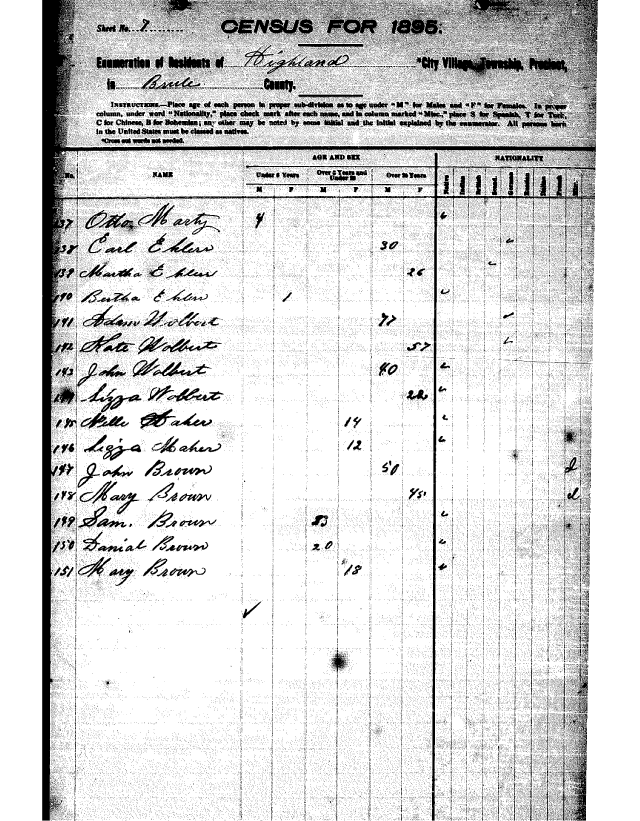 Sheet No. 7
CENSUS FOR 1895.
Enumeration of Residents of Highland *City Village, Township, Precinct,
in Brule County.
INSTRUCTIONS.—Place age of each person in proper sub-division as to age under "M" for Males and "F" for Females. In proper
column, under word "Nationality," place check mark after each name, and in column marked "Misc.," place S for Spanish, T for Turk,
C for Chinese, B for Bohemian; any other may be noted by some initial and the initial explained by the enumerator. All persons born
in the United States must be classed as natives.
*Cross out words not needed.
AGE AND SEX NATIONALITY
No. NAME Under 5 Years Over 5 Years and Under 21 Over 21 Years
M F M F M F
137 Otto Marty 4
138 Carl Ehlen 30
139 Martha Ehlen 26
140 Bertha Ehlen 1
141 Adam Wolbert 77
142 Kate Wolbert 57
143 John Wolbert 40
144 Lizza Wolbert 22
145 Nelle Maher 14
146 Lizza Maher 12
147 John Brown 50
148 Mary Brown 45
149 Sam. Brown
150 Danial Brown 20
151 Mary Brown 18
✓